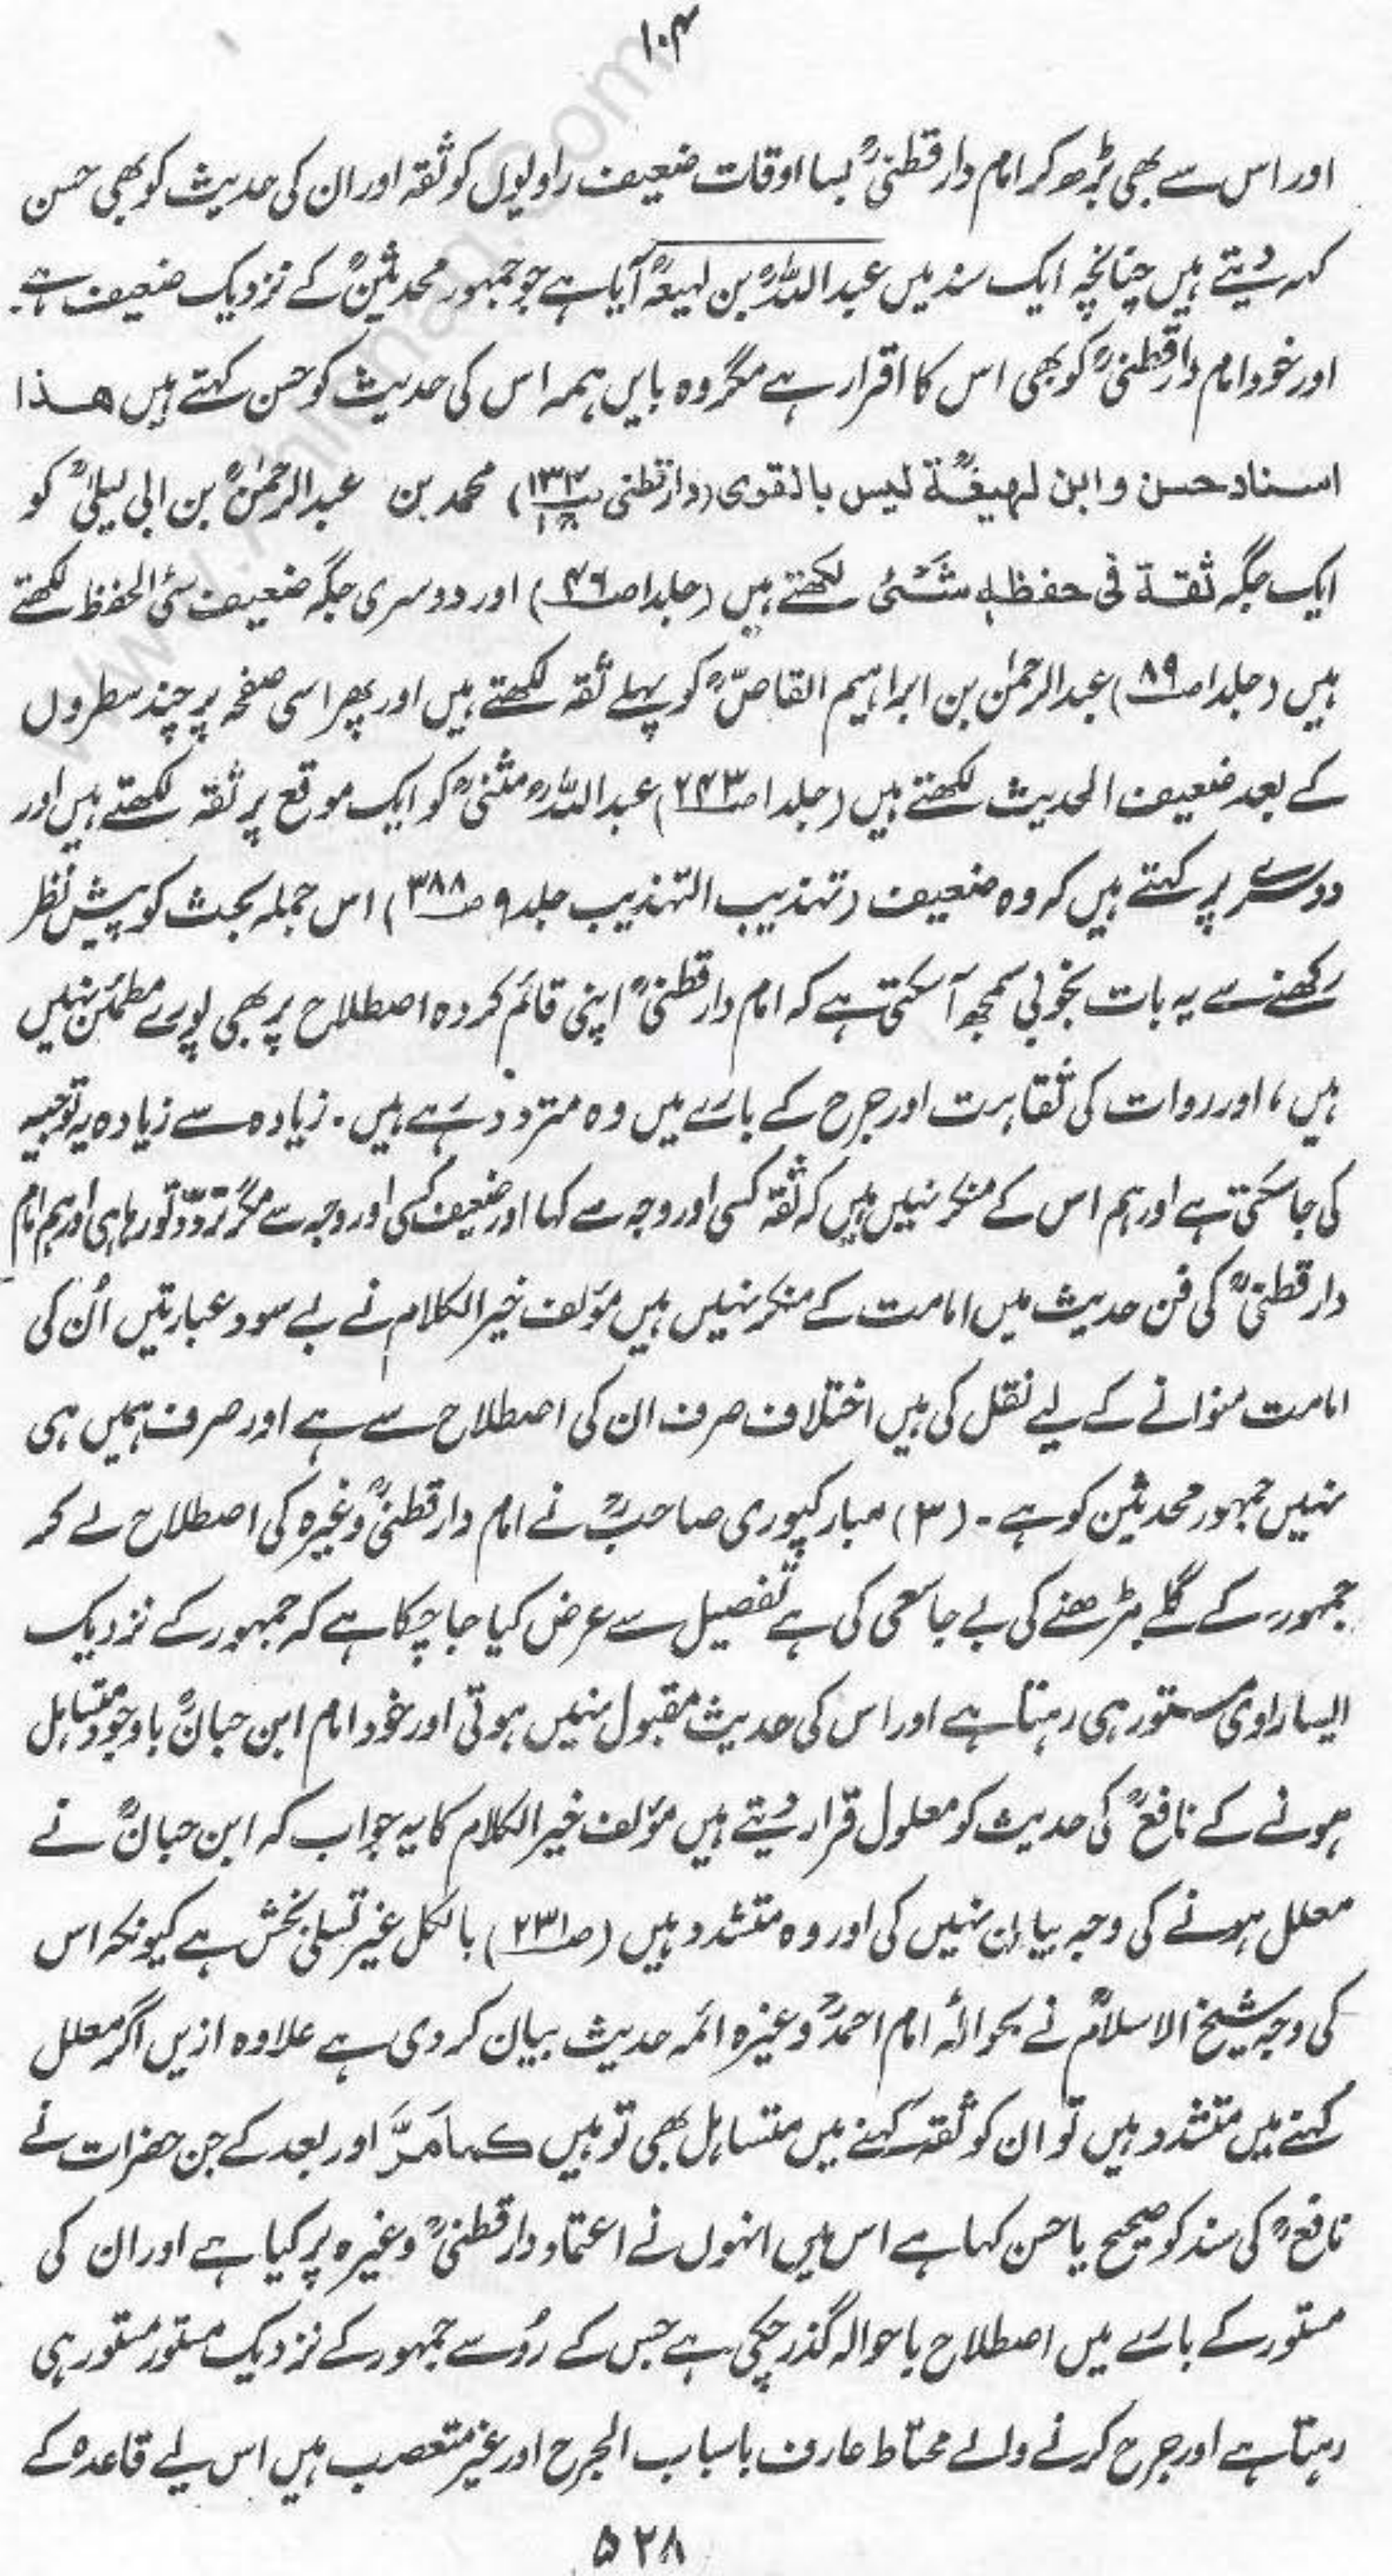 ۱۰۴
اور اس سے بھی بڑھ کر امام دارقطنیؒ بسا اوقات ضعیف راویوں کو ثقہ اور ان کی حدیث کو بھی حسن
کہہ دیتے ہیں چنانچہ ایک سند میں عبداللہؒ بن لہیعہؒ آیا ہے جو جمہور محدثینؒ کے نزدیک ضعیف ہے۔
اور خود امام دارقطنیؒ کو بھی اس کا اقرار ہے مگر وہ بایں ہمہ اس کی حدیث کو حسن کہتے ہیں ھذا
اسناد حسن وابن لهیعةؒ لیس بالقوی (دارقطنی ۱۳۳) محمد بن عبدالرحمٰنؒ بن ابی لیلیٰؒ کو
ایک جگہ ثقة فی حفظہٖ شئی لکھتے ہیں (جلد ا ص۴۶) اور دوسری جگہ ضعیف سئی الحفظ لکھتے
ہیں (جلد ا ص۸۹) عبدالرحمٰن بن ابراہیم القاصؒ کو پہلے ثقہ لکھتے ہیں اور پھر اسی صفحہ پر چند سطروں
کے بعد ضعیف الحدیث لکھتے ہیں (جلد ا ص۲۴۳) عبداللہؒ مثنیؒ کو ایک موقع پر ثقہ لکھتے ہیں اور
دوسرے پر کہتے ہیں کہ وہ ضعیف (تہذیب التہذیب جلد ۹ ص۳۸۸) اس جملہ بحث کو پیش نظر
رکھنے سے یہ بات بخوبی سمجھ آ سکتی ہے کہ امام دارقطنیؒ اپنی قائم کردہ اصطلاح پر بھی پورے مطمئن نہیں
ہیں، اور روات کی ثقاہت اور جرح کے بارے میں وہ متردد رہے ہیں۔ زیادہ سے زیادہ یہ توجیہ
کی جا سکتی ہے اور ہم اس کے منکر نہیں ہیں کہ ثقہ کسی اور وجہ سے کہا اور ضعیف کسی اور وجہ سے مگر تردّد تو رہا ہی اور ہم امام
دارقطنیؒ کی فن حدیث میں امامت کے منکر نہیں ہیں مؤلف خیر الکلام نے بے سود عبارتیں اُن کی
امامت منوانے کے لیے نقل کی ہیں اختلاف صرف ان کی اصطلاح سے ہے اور صرف ہمیں ہی
نہیں جمہور محدثین کو ہے۔ (۳) مبارکپوری صاحبؒ نے امام دارقطنیؒ وغیرہ کی اصطلاح لے کر
جمہور کے گلے مڑھنے کی بے جا سعی کی ہے تفصیل سے عرض کیا جا چکا ہے کہ جمہور کے نزدیک
ایسا راوی مستور ہی رہتا ہے اور اس کی حدیث مقبول نہیں ہوتی اور خود امام ابن حبانؒ باوجود متساہل
ہونے کے نافعؒ کی حدیث کو معلول قرار دیتے ہیں مؤلف خیر الکلام کا یہ جواب کہ ابن حبانؒ نے
معلل ہونے کی وجہ بیان نہیں کی اور وہ متشدد ہیں (ص۲۳۱) بالکل غیر تسلی بخش ہے کیونکہ اس
کی وجہ شیخ الاسلامؒ نے بحوالۂ امام احمدؒ وغیرہ ائمہ حدیث بیان کر دی ہے علاوہ ازیں اگر معلل
کہنے میں متشدد ہیں تو ان کو ثقہ کہنے میں متساہل بھی تو ہیں کمامَرَّ اور بعد کے جن حضرات نے
نافعؒ کی سند کو صحیح یا حسن کہا ہے اس میں انہوں نے اعتماد دارقطنیؒ وغیرہ پر کیا ہے اور ان کی
مستور کے بارے میں اصطلاح باحوالہ گذر چکی ہے جس کے رُو سے جمہور کے نزدیک مستور مستور ہی
رہتا ہے اور جرح کرنے والے محتاط عارف باسباب الجرح اور غیر متعصب ہیں اس لیے قاعدہ کے
۵۲۸